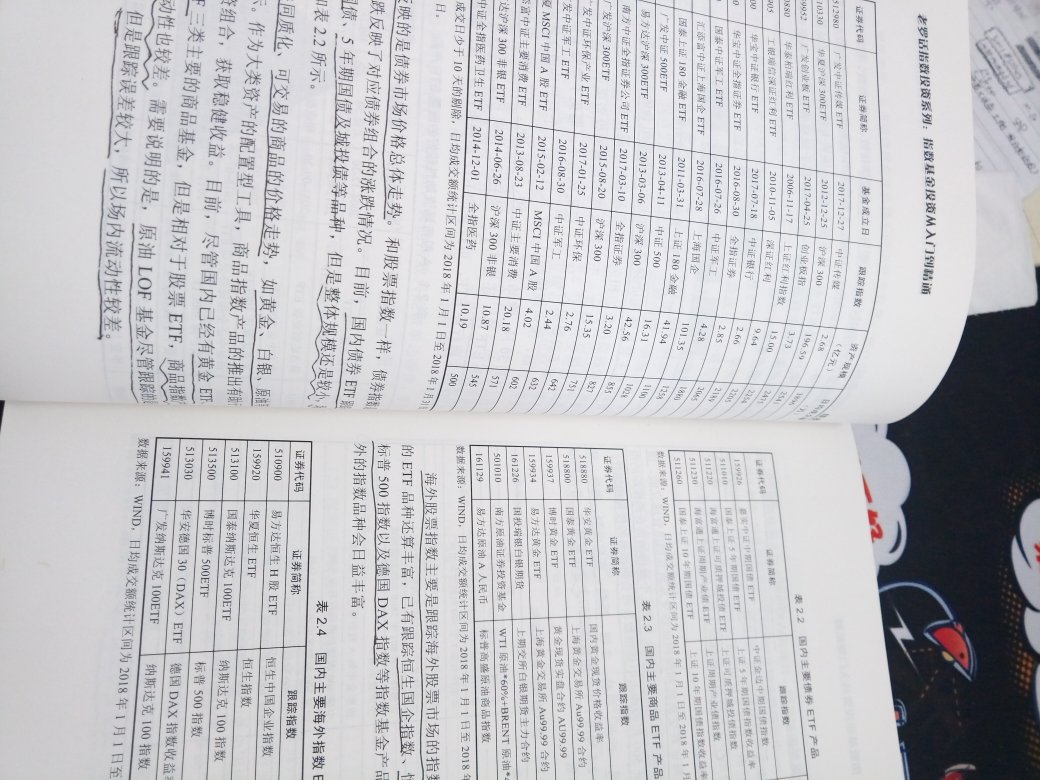 老罗话指数投资系列：指数基金投资从入门到精通
证券代码 证券简称 基金成立日 跟踪指数 资产规模（亿元）
512980 广发中证传媒 ETF 2017-12-27 中证传媒 2.68
510330 华夏沪深 300ETF 2012-12-25 沪深 300 196.59
9952 广发创业板 ETF 2017-04-25 创业板指 3.73
0880 华泰柏瑞红利 ETF 2006-11-17 上证红利指数 15.00
905 工银瑞信深证红利 ETF 2010-11-05 深证红利 9.64
00 华宝中证银行 ETF 2017-07-18 中证银行 2.66
华宝中证全指证券 ETF 2016-08-30 全指证券 2.85
国泰中证军工 ETF 2016-07-26 中证军工 4.28
汇添富中证上海国企 ETF 2016-07-28 上海国企 101.35
国泰上证 180 金融 ETF 2011-03-31 上证 180 金融 41.94
广发中证 500ETF 2013-04-11 中证 500 16.31
易方达沪深 300ETF 2013-03-06 沪深 300 42.56
南方中证全指证券公司 ETF 2017-03-10 全指证券 3.20 855
广发沪深 300ETF 2015-08-20 沪深 300 15.35 827
广发中证环保产业 ETF 2017-01-25 中证环保 2.76 751
发中证军工 ETF 2016-08-30 中证军工 2.44 642
夏 MSCI 中国 A 股 ETF 2015-02-12 MSCI 中国 A 股 4.02 632
富中证主要消费 ETF 2013-08-23 中证主要消费 20.18 603
达沪深 300 非银 ETF 2014-06-26 沪深 300 非银 10.87 546
中证全指医药卫生 ETF 2014-12-01 全指医药 10.19 500
成交日少于 10 天的剔除，日均成交额统计区间为 2018 年 1 月 1 日至 2018 年
日。
反映的是债券市场价格总体走势。和股票指数一样，债券指数
跌反映了对应债券组合的涨跌情况。目前，国内债券 ETF
国债、5 年期国债及城投债等品种，但是整体规模还是较小，
如表 2.2 所示。
同质化，可交易的商品的价格走势，如黄金、白银、原油
，作为大类资产的配置型工具，商品指数产品的推出有
资组合，获取稳健收益。目前，尽管国内已经有黄金 ET
三类主要的商品基金，但是相对于股票 ETF，商品指数
动性也较差。需要说明的是，原油 LOF 基金尽管跟踪的
但是跟踪误差较大，所以场内流动性较差。
表 2.2 国内主要债券 ETF 产品
证券代码 证券简称 跟踪指数
159926 嘉实中证中期国债 ETF 中证金边中期国债指数
511010 国泰上证 5 年期国债 ETF 上证 5 年期国债指数收益率
511220 海富通上证可质押城投债 ETF 上证可质押城投债指数
511230 海富通上证周期产业债 ETF 上证周期产业债指数
511260 国泰上证 10 年期国债 ETF 上证 10 年期国债指数收益率
数据来源：WIND，日均成交额统计区间为 2018 年 1 月 1 日至 2018 年 1 月
表 2.3 国内主要商品 ETF 产品
证券代码 证券简称 跟踪指数
518880 华安黄金 ETF 国内黄金现货价格收益率
518800 国泰黄金 ETF 上海黄金交易所 Au99.99 合约
159937 博时黄金 ETF 黄金现货实盘合约 AU99.99
159934 易方达黄金 ETF 上海黄金交易所 Au99.99 合约
161226 国投瑞银白银期货 上期交所白银期货主力合约
501010 南方原油证券投资基金 WTI 原油*60%+BRENT 原油*4
161129 易方达原油 A 人民币 标普高盛原油商品指数
数据来源：WIND，日均成交额统计区间为 2018 年 1 月 1 日至 2018 年
海外股票指数主要是跟踪海外股票市场的指数
的 ETF 品种还算丰富，已有跟踪恒生国企指数、恒
标普 500 指数以及德国 DAX 指数等指数基金产品
外的指数品种会日益丰富。
表 2.4 国内主要海外指数 E
证券代码 证券简称 跟踪指数
510900 易方达恒生 H 股 ETF 恒生中国企业指数
159920 华夏恒生 ETF 恒生指数
513100 国泰纳斯达克 100ETF 纳斯达克 100 指数
513500 博时标普 500ETF 标普 500 指数
513030 华安德国 30（DAX）ETF 德国 DAX 指数收益率
159941 广发纳斯达克 100ETF 纳斯达克 100 指数
数据来源：WIND，日均成交额统计区间为 2018 年 1 月 1 日至